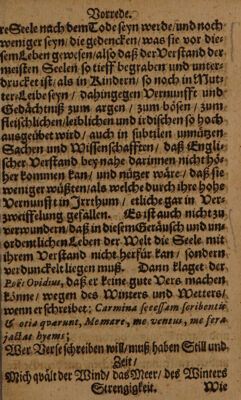 Vorrede.
re Seele nach dem Tode seyn werde/und noch
weniger seyn/ die gedencken/ was sie vor die-
sem Leben gewesen/also daß der Verstand der
meisten Seelen so tieff begraben und unter-
drucket ist/als in Kindern/ so noch in Mut-
ter-Leibe seyn / dahingegen Vernunfft und
Gedächtniß zum argen / zum bösen / zum
fleischlichen/leiblichen und irdischen so hoch
ausgeübet wird / auch in subtilen unnützen
Sachen und Wissenschafften / daß Engli-
scher Verstand bey nahe darinnen nicht hö-
her kommen kan/ und nützer wäre/ daß sie
weniger wüßten/als welche durch ihre hohe
Vernunfft in Irrthum / etliche gar in Ver-
zweiffelung gefallen. Es ist auch nicht zu
verwundern/ daß in diesem Geräusch und un-
ordentlichen Leben der Welt die Seele mit
ihrem Verstand nicht herfür kan / sondern
verdunckelt liegen muß. Dann klaget der
Poët Ovidius, daß er keine gute Vers machen
könne/ wegen des Winters und Wetters/
wenn er schreibet; Carmina secessum scribentis
& otia qvarunt, Me mare, me ventus, me fera
jactat hyems;
Wer Verse schreiben will/ muß haben Still und
Zeit/
Mich qvält der Wind/ das Meer/ des Winters
Strengigkeit. Wie